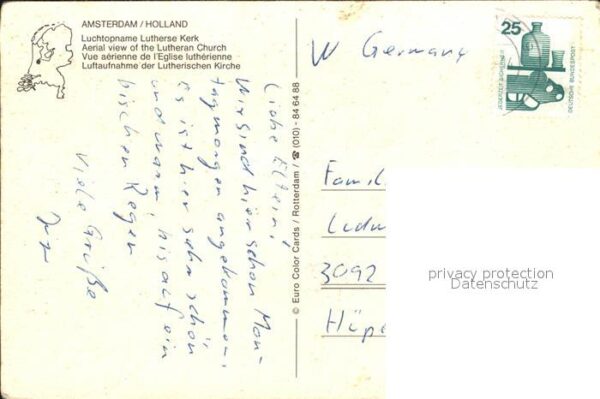 AMSTERDAM / HOLLAND
Luchtopname Lutherse Kerk
Aerial view of the Lutheran Church
Vue aérienne de l'Eglise luthérienne
Luftaufnahme der Lutherischen Kirche
Liebe Eltern!
Wir sind hier schon Mon-
tagmorgen angekommen.
Es ist hier sehr schön
und warm, bis auf ein
bischen Regen
Viele Grüße
© Euro Color Cards / Rotterdam / ☎ (010) - 84 64 88
W Germany
25
JEDERZEIT SICHERHEIT
DEUTSCHE BUNDESPOST
Famil
Ludw
3092
Höpe
privacy protection
Datenschutz